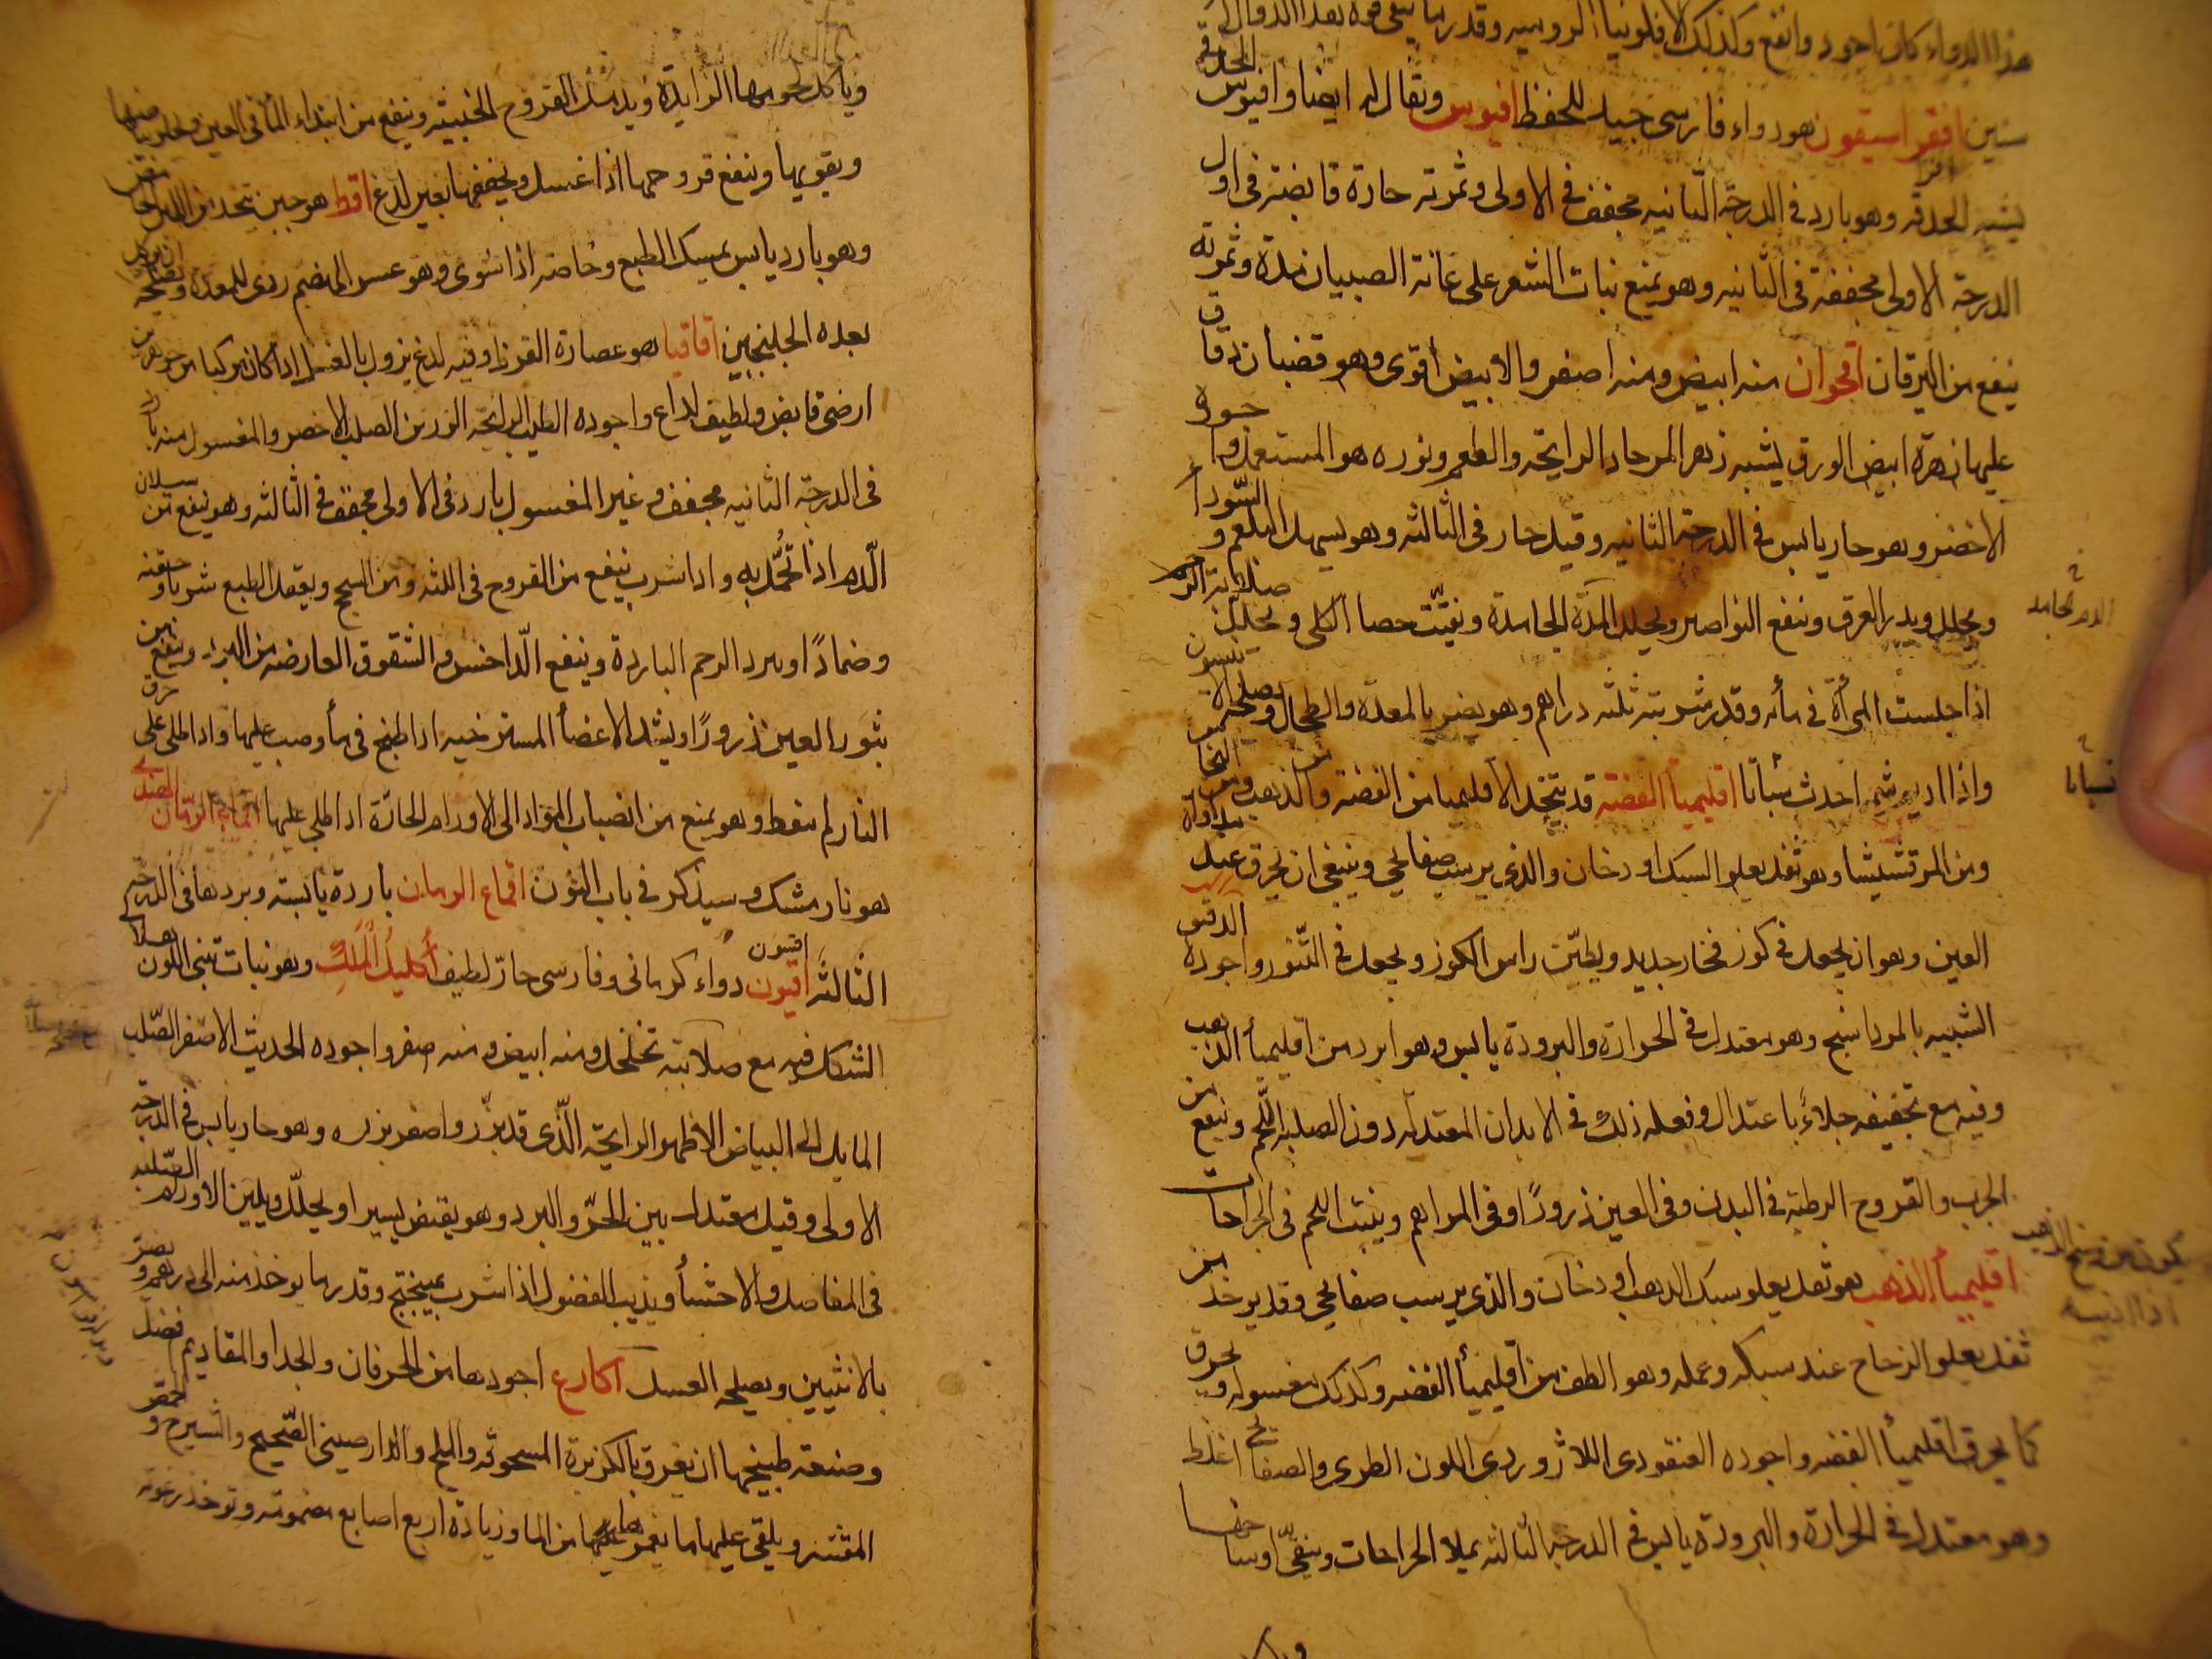 هذا الدواء كان اجود وانفع وكذلك الافلونيا الروميه وقدر ما يبقى قوة هذا الدوا الى
سنين افقراسيقون هو دواء فارسى جيد للحفظ افيوس ويقال له ايضا وافيوس الحدقى
يشبه الحدقه وهو بارد فى الدرجة الثانيه مجفف فى الاولى وثمرته حادة قابضة فى اول
الدرجة الاولى مجففة فى الثانيه وهو يمنع نبات الشعر على عانة الصبيان مدة وثمرته
ينفع من اليرقان اقحوان منه ابيض ومنه اصفر والابيض اقوى وهو قضبان دقاق
عليها زهرة ابيض الورق يشبه زهر المر حاد الرايحة والطعم ونوره هو المستعمل واجوده
الاخضر وهو حار يابس فى الدرجة الثانيه وقيل حار فى الثالثه وهو يسهل البلغم والسودا
ومحلل ويدر العرق وينفع النواصير ويحلل المدة الجامدة ويفتت حصا الكلى ويحلل صلابة الرحم
اذا جلست المرأة فى مائه وقدر شربته ثلثه دراهم وهو يضر بالمعدة والطحال ويصلحه الانيسون
واذا اديم شمه احدث سباتا اقليميا الفضه قد يتخذ الاقليميا من الفضه والذهب ومن النحاس
ومن المرقشيشا وهو ثفل يعلو السبك او دخان والذى يرسب صفايحى وينبغى ان يحرق عند مداواة
العين وهو ان يجعل فى كوز فخار جديد ويطين راس الكوز ويجعل فى التنور واجوده الدقيق
الشبيه بالمرداسنج وهو معتدل فى الحرارة والبرودة يابس وهو ابرد من اقليميأ الذهب
وفيه مع تجفيفه جلاءً باعتدال وفعله ذلك فى الابدان المعتدله دون الصلبه اللحم وينفع من
الجرب والقروح الرطبة فى البدن وفى العين ذرورًا وفى المراهم وينبت اللحم فى الجراحات
اقليميأ الذهب هو ثفل يعلو سبك الذهب او دخان والذى يرسب صفايحى وقد يوخذ من
ثفل يعلو الزجاج عند سبكه وعمله وهو الطف من اقليميأ الفضه وكذلك مغسوله ويحرق
كما يحرق اقليميأ الفضه واجوده العنقودى اللازوردى اللون الطرى والصفايحى اغلظ
وهو معتدل فى الحرارة والبرودة يابس فى الدرجة الثالثه يملا الجراحات وينقى اوساخها
الدم الجامد
سباتا
وياكل لحومها الزايدة ويدمل القروح الخبيثه وينفع من ابتداء الماء فى العين
ويقويها وينفع قروحها اذا غسل ويجففها بغير لدغ اقط هو جبن يتخذ من اللبن الحامض
وهو بارد يابس يمسك الطبع وخاصه اذا شوى وهو عسر الهضم ردى للمعدة ويصلحه ان يوكل
بعده الجلنجبين اقاقيا هو عصارة القرظ وفيه لدغ يزول بالغسل اذا كان مركبا من جوهرين
ارضى قابض ولطيف لداع واجوده الطيب الرايحه الرزين الصلب الاخضر والمغسول منه بارد
فى الدرجة الثانيه مجفف وغير المغسول بارد فى الاولى مجفف فى الثالثه وهو ينفع من سيلان
الدم اذا تحمل به واذا شرب ينفع من القروح فى اللثه ومن السحج ويعقل الطبع شربا وحقنه
وضمادًا ويبرد الرحم الباردة وينفع الداحس والشقوق العارضه من البرد وينفع من
بثور العين ذرورًا ويشد الاعضأ المسترخيه اذا طبخ فى مأ وصب عليها واذا طلى على حرق
النار لم ينفط وهو يمنع من انصباب المواد الى الاورام الحارة اذا طلى عليها اقماع الرمان الهندى
هو نارمشك وسيذكر فى باب النون اقماع الرمان باردة يابسه وبردها فى الدرجة
الثالثه اقيون دواء كرمانى وفارسى حارّ لطيف أكليل الملك وهو نبات تبنى اللون هلالى
الشكل فيه مع صلابته تخلخل ومنه ابيض ومنه صفر واجوده الحديث الاصفر الصلب
المايل الى البياض الاظهر الرايحة الذى قد بزر واصفر بزره وهو حار يابس فى الدرجة
الاولى وقيل معتدل بين الحر والبرد وهو يقبض يسيرا ويحلل ويلين الاورام الصلبه
فى المفاصل والاحشأ ويذيب الفضول اذا شرب بميبختج وقدر ما يوخذ منه الى درهم ويضر
بالانثيين ويصلحه العسل اكارع اجودها من الخرفان والجدا والمقاديم فضل
وصنعة طبيخها ان يعرق بالكزبرة المسحوقه والملح والدارصينى الصحيح والشيرج والحمص
المقشر ويلقى عليها ما يغمرها من الما وزيادة اربع اصابع مضمومه وتوخذ رغوته